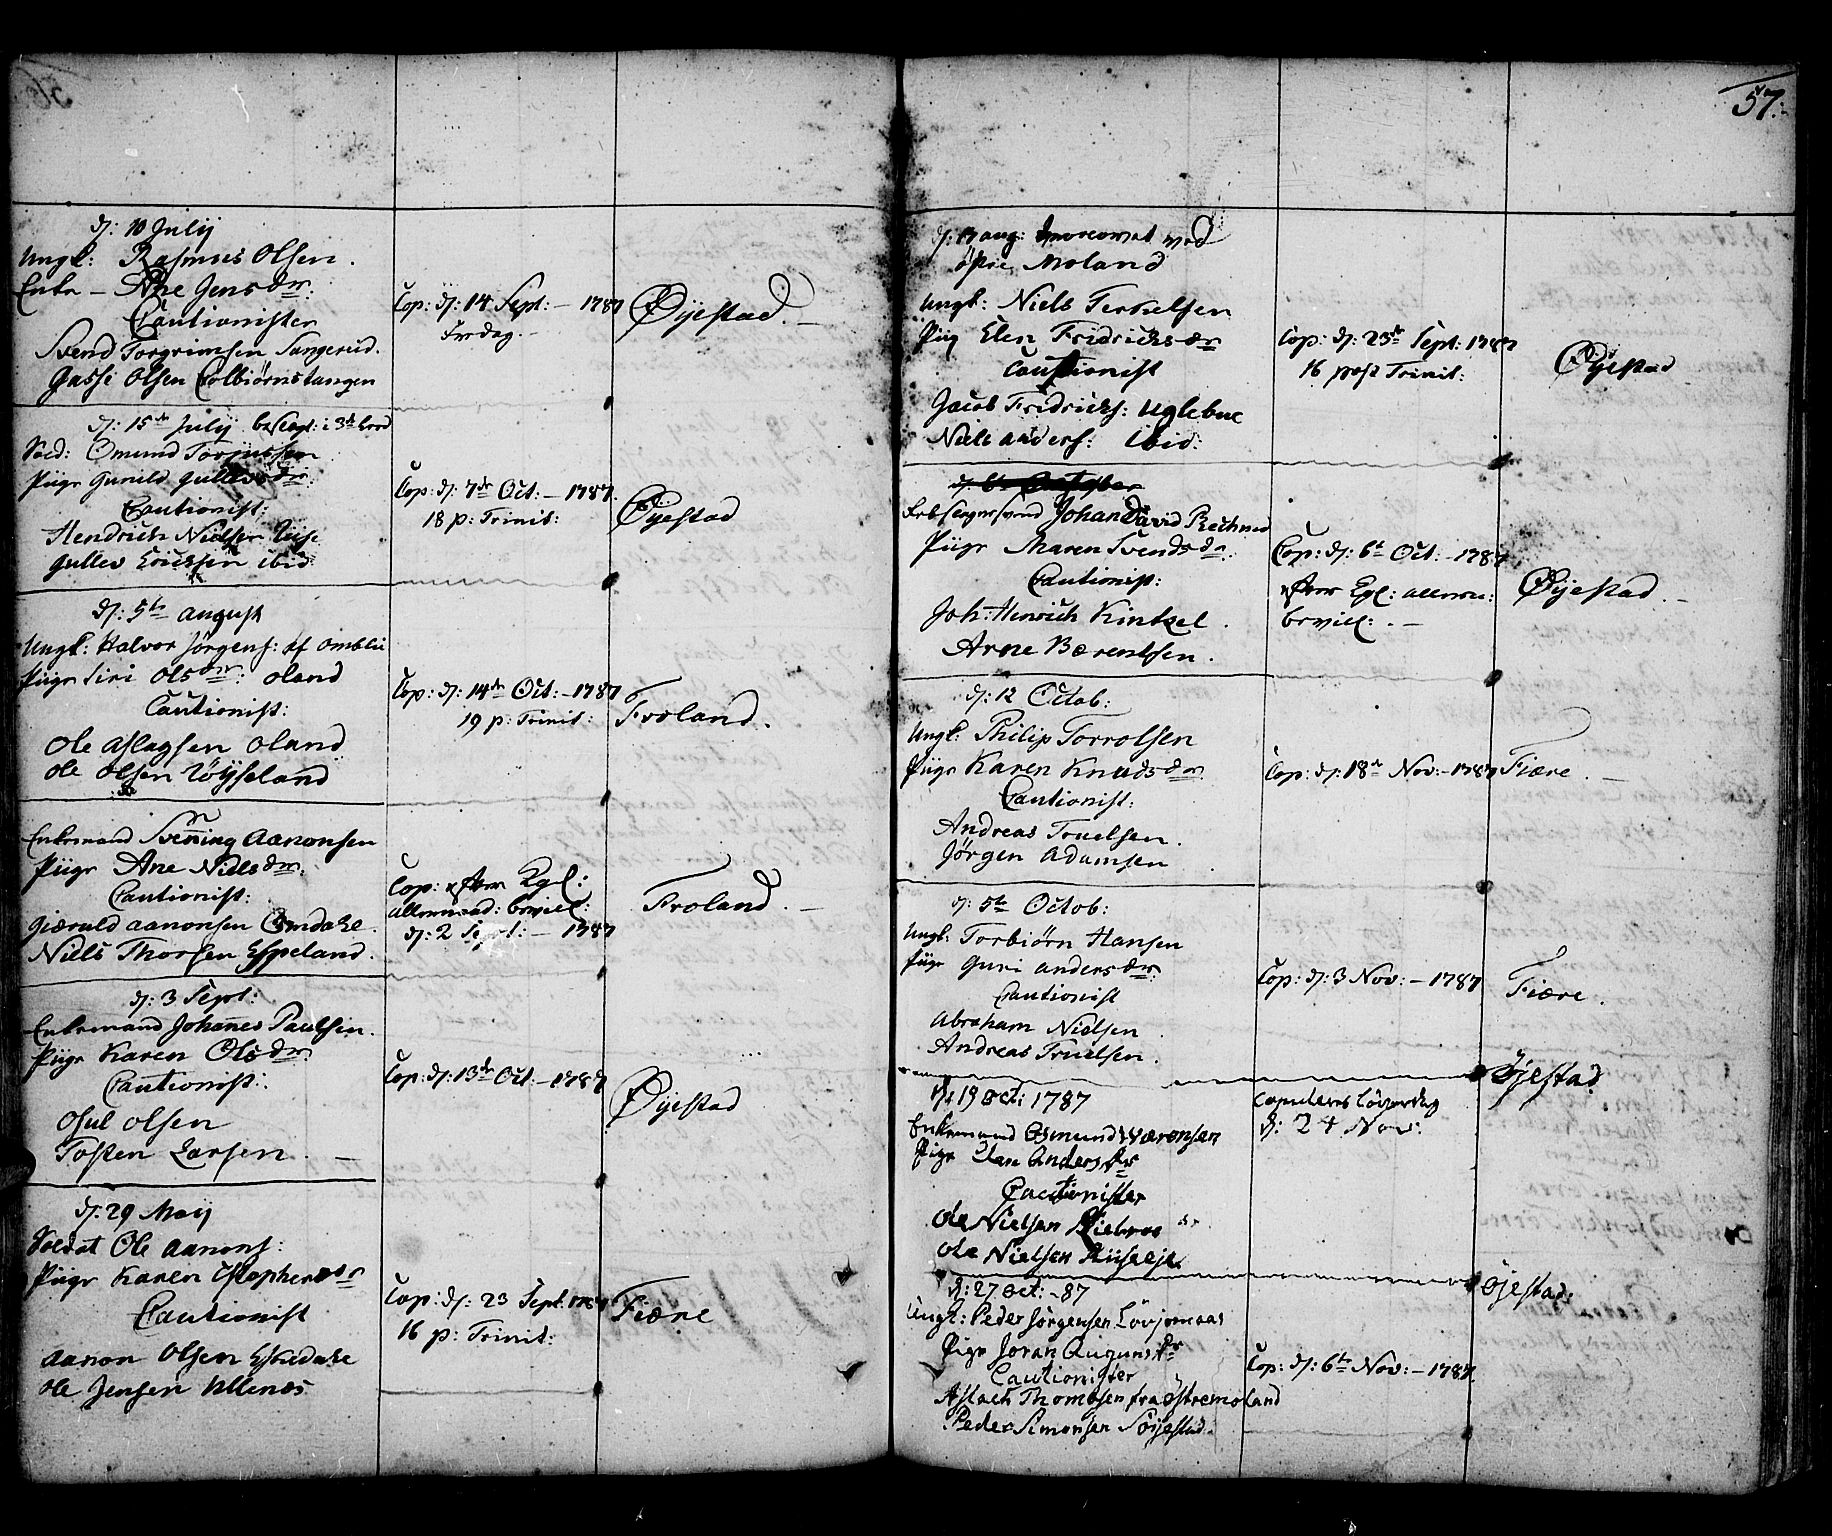 57.
d: 10 Julij
Ungk: Rasmus Olsen.
Enke – Ane Jensdr:
Cautionister
Svend Torgrimsen Tangerud.
Gasse Olsen Colbiørnstangen
Cop: d: 14 Sept: – 1787
Fredag. –
Øyestad. –
d: 15de Julij
Sold: Omund Torjussen
Piige Gunild Gullevsdr:
Cautionist:
Hendrich Nielsen
Gullev Ericksen ibid
Cop: d: 7de Oct: – 1787.
18 p: Trinit:
Øyestad
d: 5te August
Ungk: Halvor Jørgens: af Omblie
Piige Siri Olsdr: Oland
Cautionist:
Ole Aslagsen Oland
Ole Olsen Løyseland
Cop: d: 14de Oct: – 1787
19 p: Trinit:
Froland.
Enkemand Svenning Aanonsen
Piige Ane Nielsdr:
Cautionist:
Gieruld Aanonsen
Niels Thorsen Espeland.
Cop: efter Kgl:
allernaad: bevill:
d: 2 Sept: – 1787
Froland. –
d: 3 Sept:
Enkemand Johanes Paulsen.
Piige Karen Olsdr
Cautionist:
Osul Olsen
Tosten Larsen. –
Cop: d: 13de Oct: – 1787
Øyestad
d: 29 Maij
Soldat Ole Aanons:
Piige Karen
Cautionist
Aanon Olsen Eskedale
Ole Jensen Ullenes
Cop: d: 23 Sept: 1787
16 p: Trinit:
Fiære
d: aug: ved
Moland
Ungk: Niels Terkelsen
Piig Elen Fridrichsdr
Cautionist
Jacob Fridrichs: Uglebue
Niels Anders: ibid:
Cop: d: 23de Sept: 1787
16 post Trinit:
Øyestad
d: 6te October
Johan David
Piige Maren Svendsdr:
Cautionist:
Joh: Henrich Kintzel.
Arne Bærentsen.
Cop: d: 6te Oct: – 1787
efter Kgl: allern:
bevill: . –
Øyestad. –
d: 12 Octob:
Ungk: Philip Torrolsen
Piige Karen Knudsdr
Cautionist:
Andreas Truelsen.
Jørgen Adamsen
Cop: d: 18de Nov: – 1787
Fiære. –
d: 5te Octob:
Ungk: Torbiørn Hansen
Piige Guri Andersdr:
Cautionist
Abraham Nielsen
Andreas Truelsen.
Cop: d: 3 Nov: – 1787
Fiære.
d: 19 Oct: 1787
Enkemand Osmund
Piige Andersdr
Cautionister
Ole Nielsen
Ole Nielsen
Copuleres Løverdag
d: 24 Nov:
Øjestad
d: 27 Oct: –87
Ungk: Peder Jørgensen
Pige Joran
Cautionister
Aslach Thomesen fra Østremoland
Peder Simonsen
Cop: d: 6te Nov: – 1787.
Øjestad: